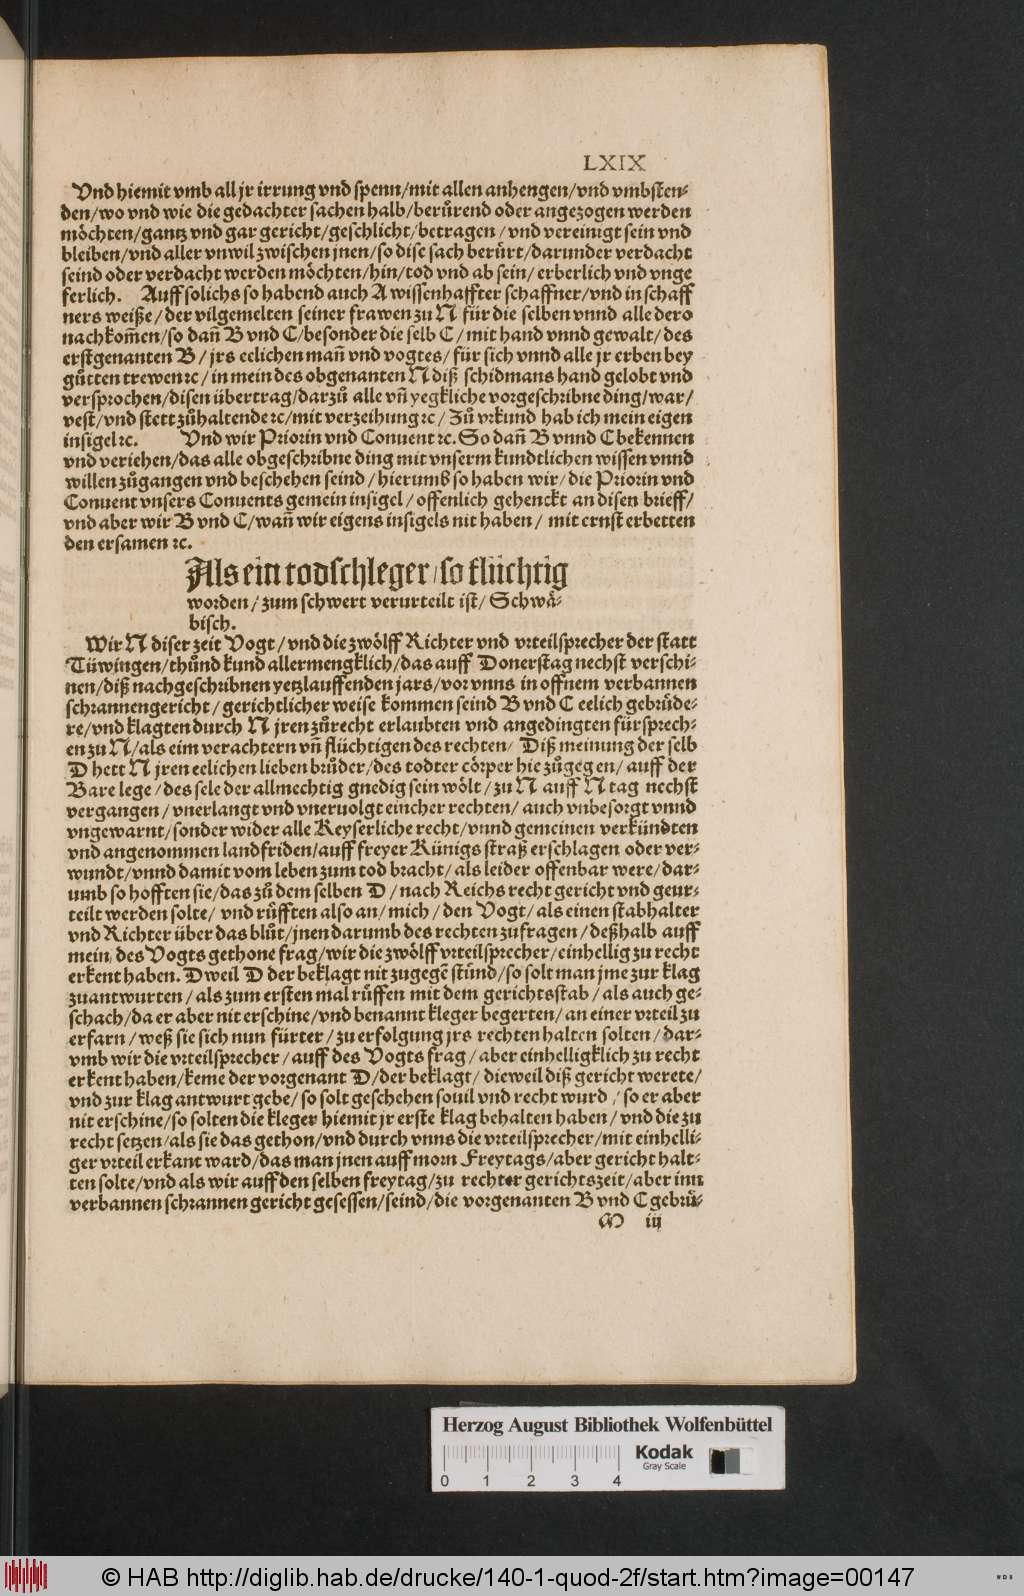 LXIX
Vnd hiemit vmb all jr irrung vnd spenn/mit allen anhengen/vnd vmbsten-
den/wo vnd wie die gedachter sachen halb/berůrend oder angezogen werden
möchten/gantz vnd gar gericht/geschlicht/betragen/vnd vereinigt sein vnd
bleiben/vnd aller vnwil zwischen jnen/so dise sach berůrt/darunder verdacht
seind oder verdacht werden möchten/hin/tod vnd ab sein/erberlich vnd vnge
ferlich. Auff solichs so habend auch A wissenhaffter schaffner/vnd in schaff
ners weiße/der vilgemelten seiner frawen zu N für die selben vnnd alle dero
nachkom̃en/so dañ B vnd C/besonder die selb C/mit hand vnnd gewalt/des
erstgenanten B/jrs eelichen mañ vnd vogtes/für sich vnnd alle jr erben bey
gůtten trewen ꝛc/in mein des obgenanten N diß schidmans hand gelobt vnd
versprochen/disen übertrag/darzů alle vñ yegkliche vorgeschribne ding/war/
vest/vnd stett zůhaltende ꝛc/mit verzeihung ꝛc/Zů vrkund hab ich mein eigen
insigel ꝛc. Vnd wir Priorin vnd Conuent ꝛc. So dañ B vnnd C bekennen
vnd veriehen/das alle obgeschribne ding mit vnserm kundtlichen wissen vnnd
willen zůgangen vnd beschehen seind/hierumb so haben wir/die Priorin vnd
Conuent vnsers Conuents gemein insigel/offenlich gehenckt an disen brieff/
vnd aber wir B vnd C/wañ wir eigens insigels nit haben/mit ernst erbetten
den ersamen ꝛc.
Als ein todschleger/so flüchtig
worden/zum schwert verurteilt ist/Schwä-
bisch.
Wir N diser zeit Vogt/vnd die zwölff Richter vnd vrteilsprecher der statt
Tüwingen/thůnd kund allermengklich/das auff Donerstag nechst verschi-
nen/diß nachgeschribnen yetzlauffenden jars/vor vnns in offnem verbannen
schrannengericht/gerichtlicher weise kommen seind B vnd C eelich gebrůde-
re/vnd klagten durch N jren zůrecht erlaubten vnd angedingten fürsprech-
en zu N/als eim verachtern vñ flüchtigen des rechten/Diß meinung der selb
D hett N jren eelichen lieben brůder/des todter cörper hie zůgegen/auff der
Bare lege/des sele der allmechtig gnedig sein wölt/zu N auff N tag nechst
vergangen/vnerlangt vnd vneruolgt eincher rechten/auch vnbesorgt vnnd
vngewarnt/sonder wider alle Keyserliche recht/vnnd gemeinen verkündten
vnd angenommen landfriden/auff freyer Künigs straß erschlagen oder ver-
wundt/vnnd damit vom leben zum tod bracht/als leider offenbar were/dar-
umb so hofften sie/das zů dem selben D/nach Reichs recht gericht vnd geur-
teilt werden solte/vnd růfften also an/mich/den Vogt/als einen stabhalter
vnd Richter über das blůt/jnen darumb des rechten zufragen/deßhalb auff
mein/des Vogts gethone frag/wir die zwölff vrteilsprecher/einhellig zu recht
erkent haben. Dweil D der beklagt nit zugegẽ stünd/so solt man jme zur klag
zuantwurten/als zum ersten mal růffen mit dem gerichtsstab/als auch ge-
schach/da er aber nit erschine/vnd benannt kleger begerten/an einer vrteil zu
erfarn/weß sie sich nun fürter/zu erfolgung jrs rechten halten solten/dar-
vmb wir die vrteilsprecher/auff des Vogts frag/aber einhelligklich zu recht
erkent haben/keme der vorgenant D/der beklagt/dieweil diß gericht werete/
vnd zur klag antwurt gebe/so solt geschehen souil vnd recht wurd/so er aber
nit erschine/so solten die kleger hiemit jr erste klag behalten haben/vnd die zu
recht setzen/als sie das gethon/vnd durch vnns die vrteilsprecher/mit einhelli-
ger vrteil erkant ward/das man jnen auff morn Freytags/aber gericht halt-
ten solte/vnd als wir auff den selben freytag/zu rechter gerichtszeit/aber inn
verbannen schrannen gericht gesessen/seind/die vorgenanten B vnd C gebrü-
M iij
Herzog August Bibliothek Wolfenbüttel
Kodak
Gray Scale
0 1 2 3 4
© HAB http://diglib.hab.de/drucke/140-1-quod-2f/start.htm?image=00147